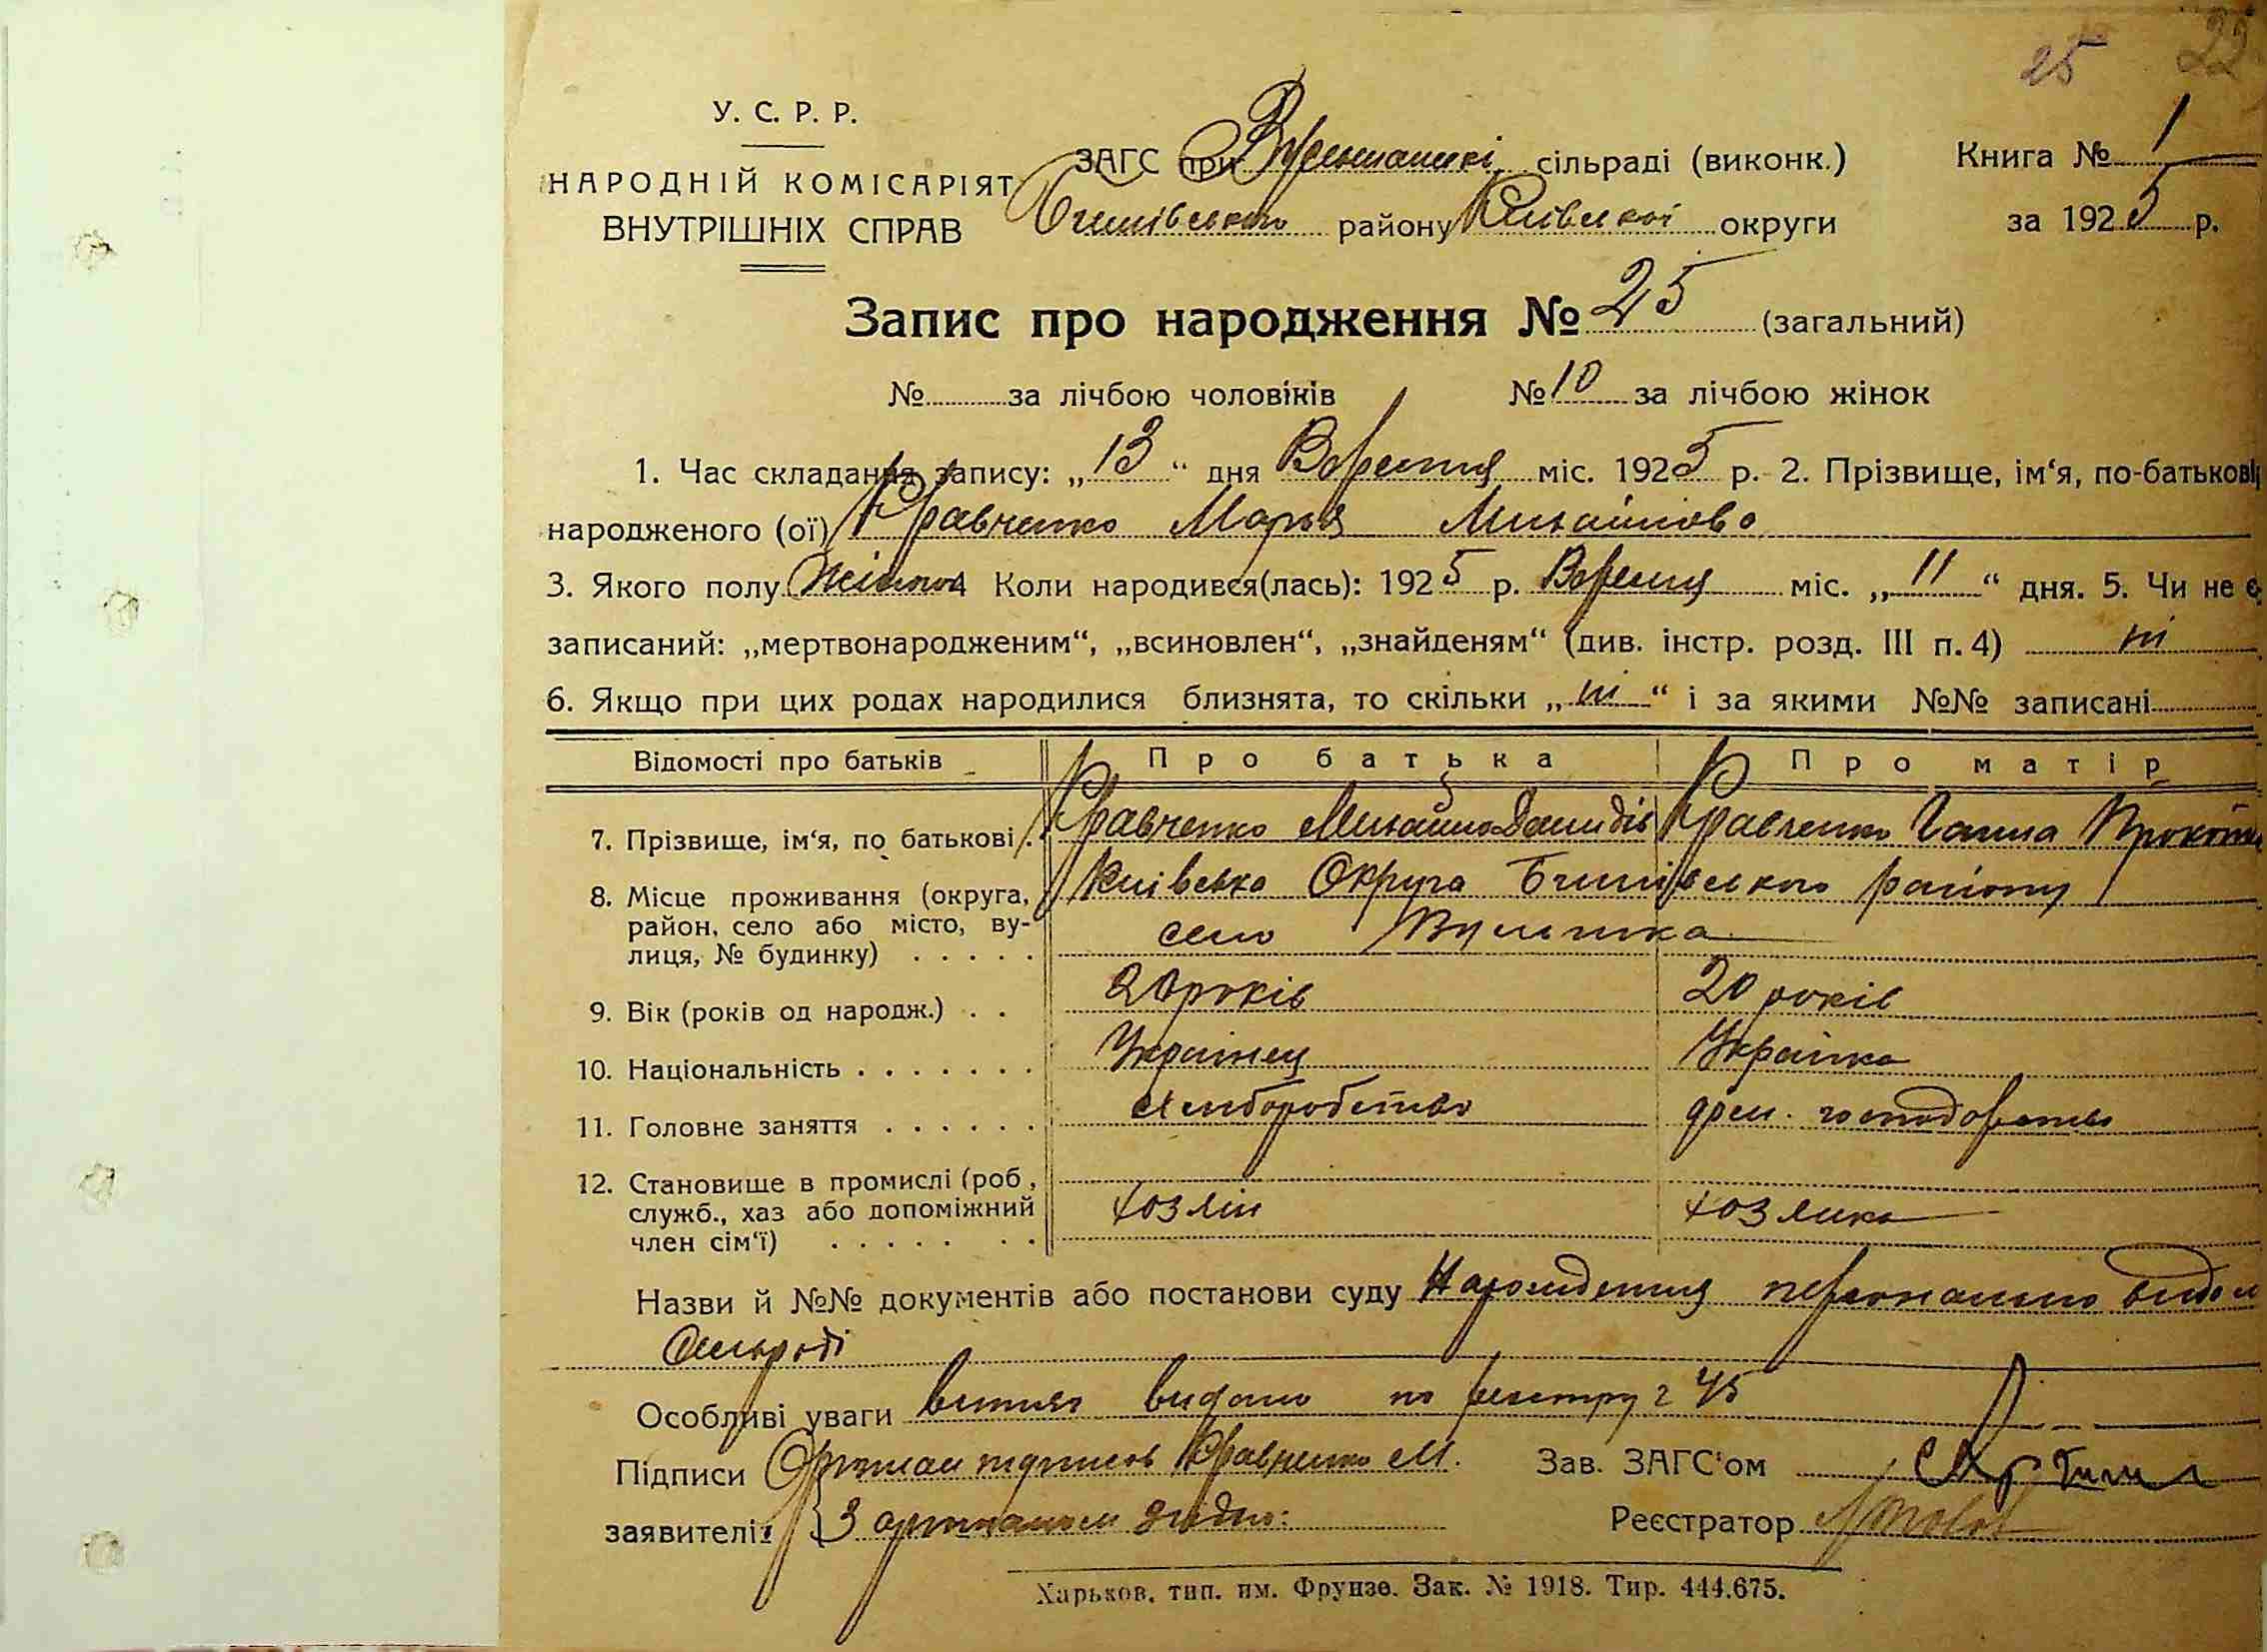 25 22
У. С. Р. Р.
НАРОДНІЙ КОМІСАРІЯТ
ВНУТРІШНІХ СПРАВ
ЗАГС при сільраді (виконк.)
району Київської округи
Книга № 1
за 1925 р.
Запис про народження № 25 (загальний)
№ за лічбою чоловіків № 10 за лічбою жінок
1. Час складання запису: „13“ дня Вересня міс. 1925 р. 2. Прізвище, ім‘я, по-батькові
народженого (ої) Кравченко Марья Михайлова
3. Якого полу Жіноч 4 Коли народився(лась): 1925 р. Вересня міс. „11“ дня. 5. Чи не є
записаний: „мертвонародженим“, „всиновлен“, „знайденям“ (див. інстр. розд. III п. 4) ні
6. Якщо при цих родах народилися близнята, то скільки „ні“ і за якими №№ записані
Відомості про батьків Про батька Про матір
7. Прізвище, ім‘я, по батькові Кравченко Михайло Демидів Кравченко Ганна
8. Місце проживання (округа, Київська Округа району
район, село або місто, ву- село
лиця, № будинку)
9. Вік (років од народж.) 20 років 20 років
10. Національність Українец Українка
11. Головне заняття хліборобство дом. господарство
12. Становище в промислі (роб,
служб., хаз або допоміжний хозяїн хозяйка
член сім‘ї)
Назви й №№ документів або постанови суду Народження
Сільраді
Особливі уваги витяг видано по реєстру 45
Підписи Оригінал підписав Кравченко М. Зав. ЗАГС‘ом
заявителів З оригіналом згідно: Реєстратор
Харьков, тип. им. Фрунзе. Зак. № 1918. Тир. 444.675.